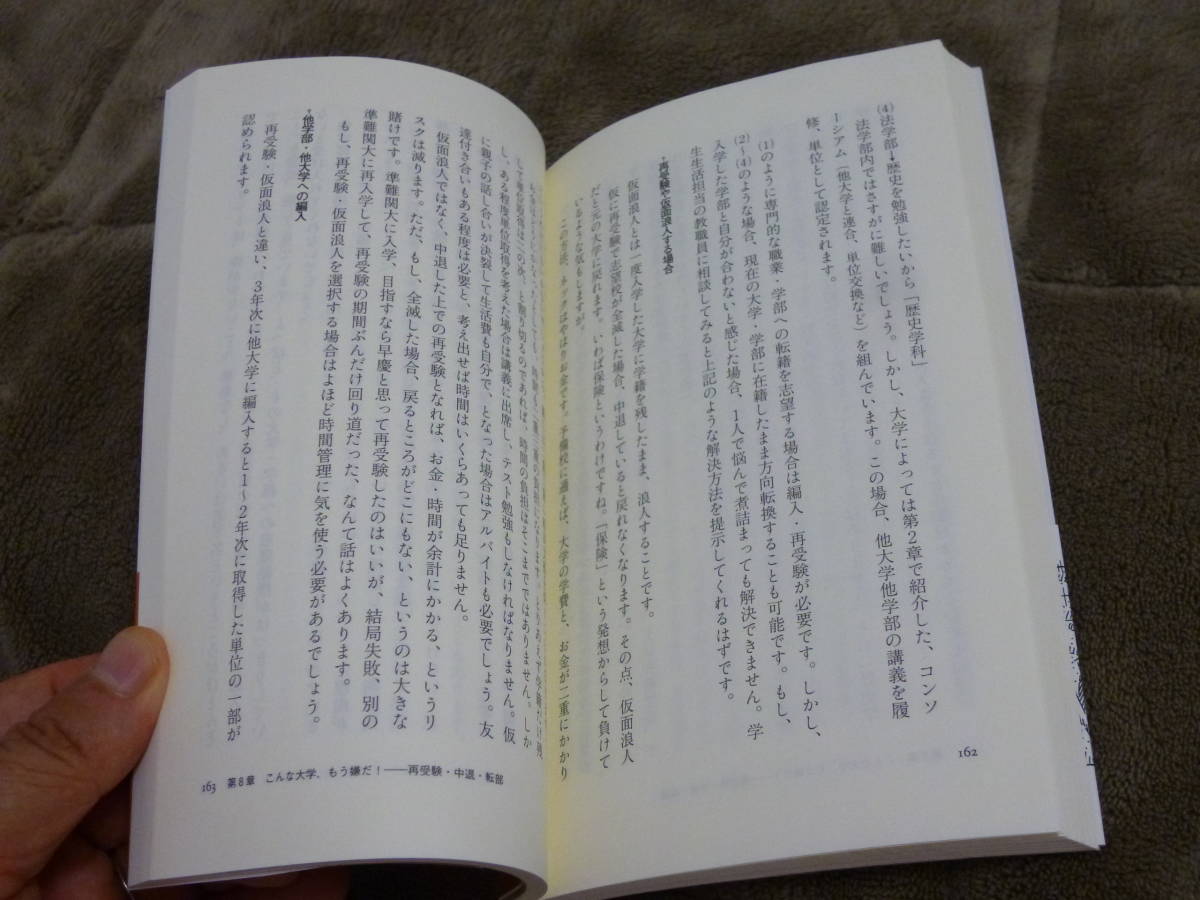 (4)法学部→歴史を勉強したいから「歴史学科」
法学部内ではさすがに難しいでしょう。しかし、大学によっては第2章で紹介した、コンソ
ーシアム（他大学と連合、単位交換など）を組んでいます。この場合、他大学他学部の講義を履
修、単位として認定されます。
(1)のように専門的な職業・学部への転籍を志望する場合は編入・再受験が必要です。しかし、
(2)～(4)のような場合、現在の大学・学部に在籍したまま方向転換することも可能です。もし、
入学した学部と自分が合わないと感じた場合、1人で悩んで煮詰まっても解決できません。学
生生活担当の教職員に相談してみると上記のような解決方法を提示してくれるはずです。
・再受験や仮面浪人する場合
仮面浪人とは一度入学した大学に学籍を残したまま、浪人することです。
仮に再受験で志望校が全滅した場合、中退していると戻れなくなります。その点、仮面浪人
だと元の大学に戻れます。いわば保険というわけですね。「保険」という発想からして負けて
いるような気もしますが。
この方法、ネックはやはりお金です。予備校に通えば、大学の学費と、お金が二重にかかり
162
して単位取得は二の次、と割り切るのであれば、時間の負担はそこまでではありません。しか
し、ある程度単位取得を考えた場合は講義に出席し、テスト勉強もしなければなりません。仮
に親子の話し合いが決裂して生活費も自分で、となった場合はアルバイトも必要でしょう。友
達付き合いもある程度は必要と、考え出せば時間はいくらあっても足りません。
仮面浪人ではなく、中退した上での再受験となれば、お金・時間が余計にかかる、というリ
スクは減ります。ただ、もし、全滅した場合、戻るところがどこにもない、というのは大きな
賭けです。準難関大に入学、目指すなら早慶と思って再受験したのはいいが、結局失敗、別の
準難関大に再入学して、再受験の期間ぶんだけ回り道だった、なんて話はよくあります。
もし、再受験・仮面浪人を選択する場合はよほど時間管理に気を使う必要があるでしょう。
・他学部・他大学への編入
再受験・仮面浪人と違い、3年次に他大学に編入すると1～2年次に取得した単位の一部が
認められます。
163 第8章 こんな大学、もう嫌だ！――再受験・中退・転部